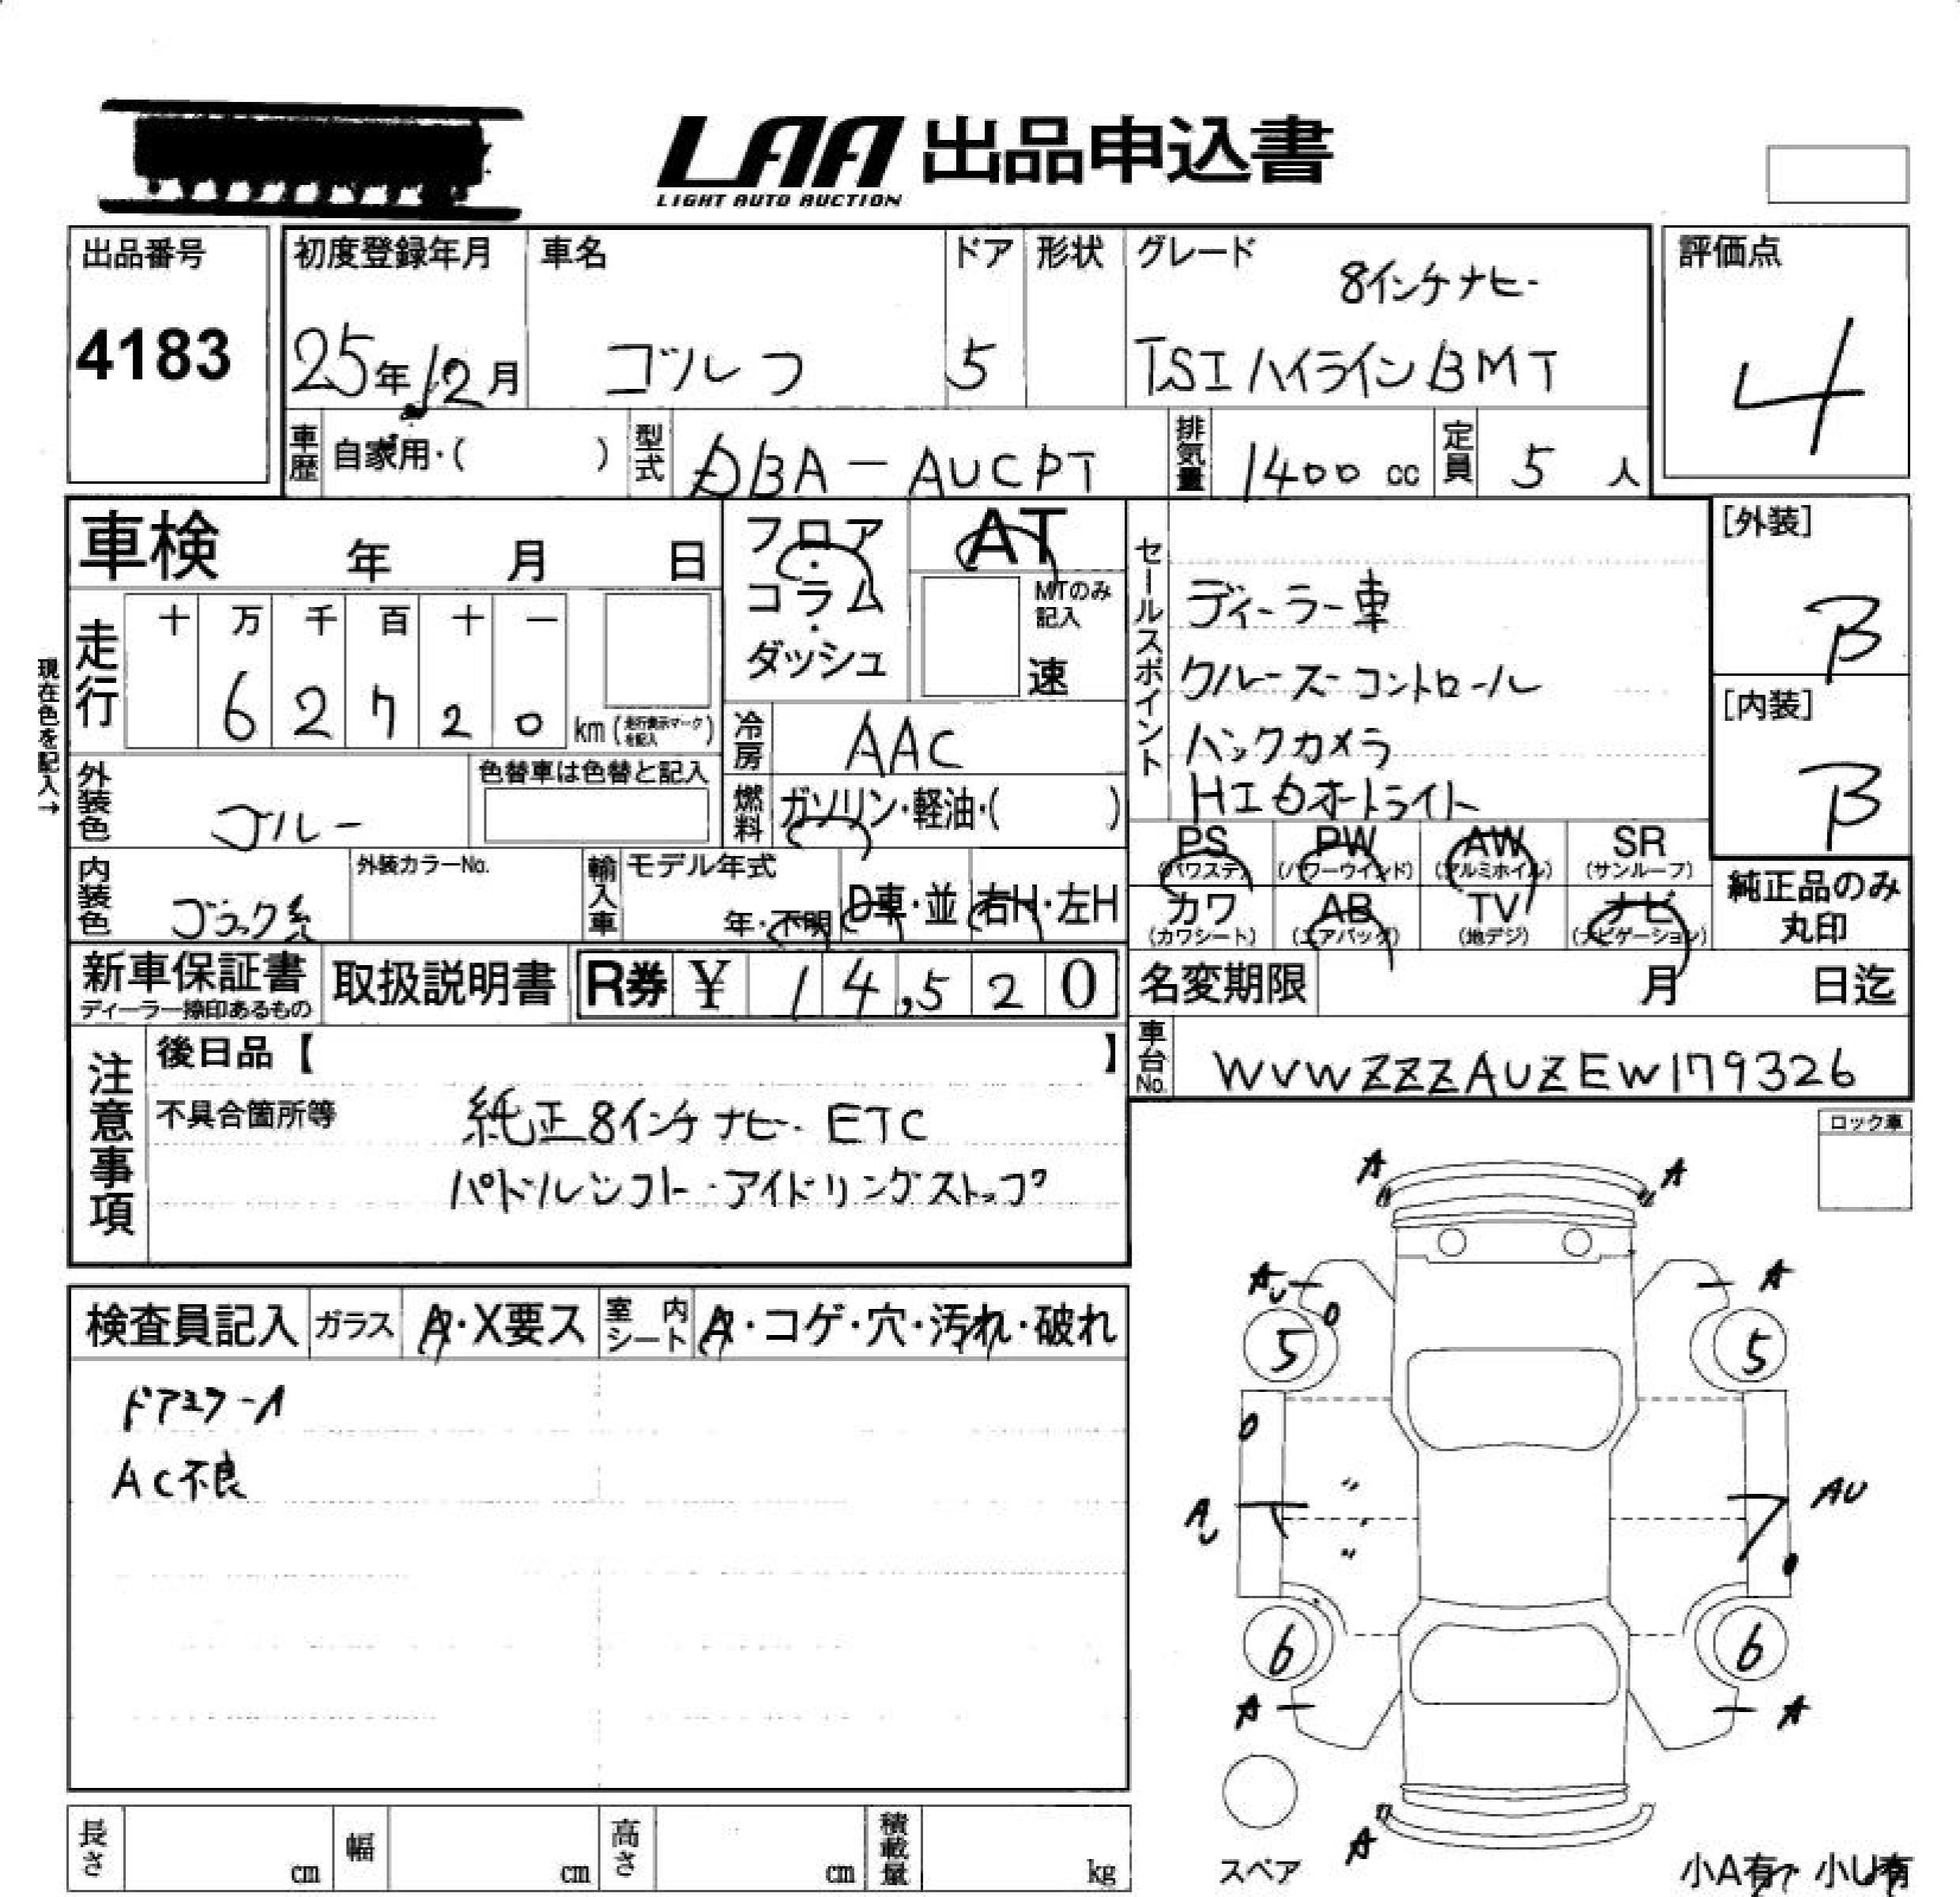 LAA 出品申込書
LIGHT AUTO AUCTION
出品番号
4183
初度登録年月
25年12月
車名
ゴルフ
ドア
5
形状
グレード
8インチナビ
TSIハイラインBMT
評価点
4
車歴 自家用・( )
型式 DBA-AUCPT
排気量 1400 cc
定員 5 人
車検 年 月 日
フロア・コラム・ダッシュ
AT
MTのみ記入
速
セールスポイント
ディーラー車
クルーズコントロール
バックカメラ
HIDオートライト
[外装]
B
[内装]
B
現在色を記入→
走行
十 万 千 百 十 一
6 2 7 2 0 km (走行表示マークを記入)
冷房 AAC
燃料 ガソリン・軽油・( )
外装色 ブルー
色替車は色替と記入
内装色 ブラック系
外装カラーNo.
輸入車
モデル年式
年・不明
D車・並
右H・左H
PS (パワステ)
PW (パワーウインド)
AW (アルミホイル)
SR (サンルーフ)
カワ (カワシート)
AB (エアバッグ)
TV (地デジ)
ナビ (ナビゲーション)
純正品のみ丸印
新車保証書
ディーラー捺印あるもの
取扱説明書
R券 ¥ 14,520
名変期限 月 日迄
車台No. WVWZZZAUZEW179326
注意事項
後日品【 】
不具合箇所等
純正8インチナビ・ETC
パドルシフト・アイドリングストップ
ロック車
検査員記入
ガラス A・X要ス
室内シート A・コゲ・穴・汚れ・破れ
ドアミラーA
AC不良
A A
AU A
5 5
AU AU
6 6
A A
A
スペア
小A有 小U有
長さ cm
幅 cm
高さ cm
積載量 kg